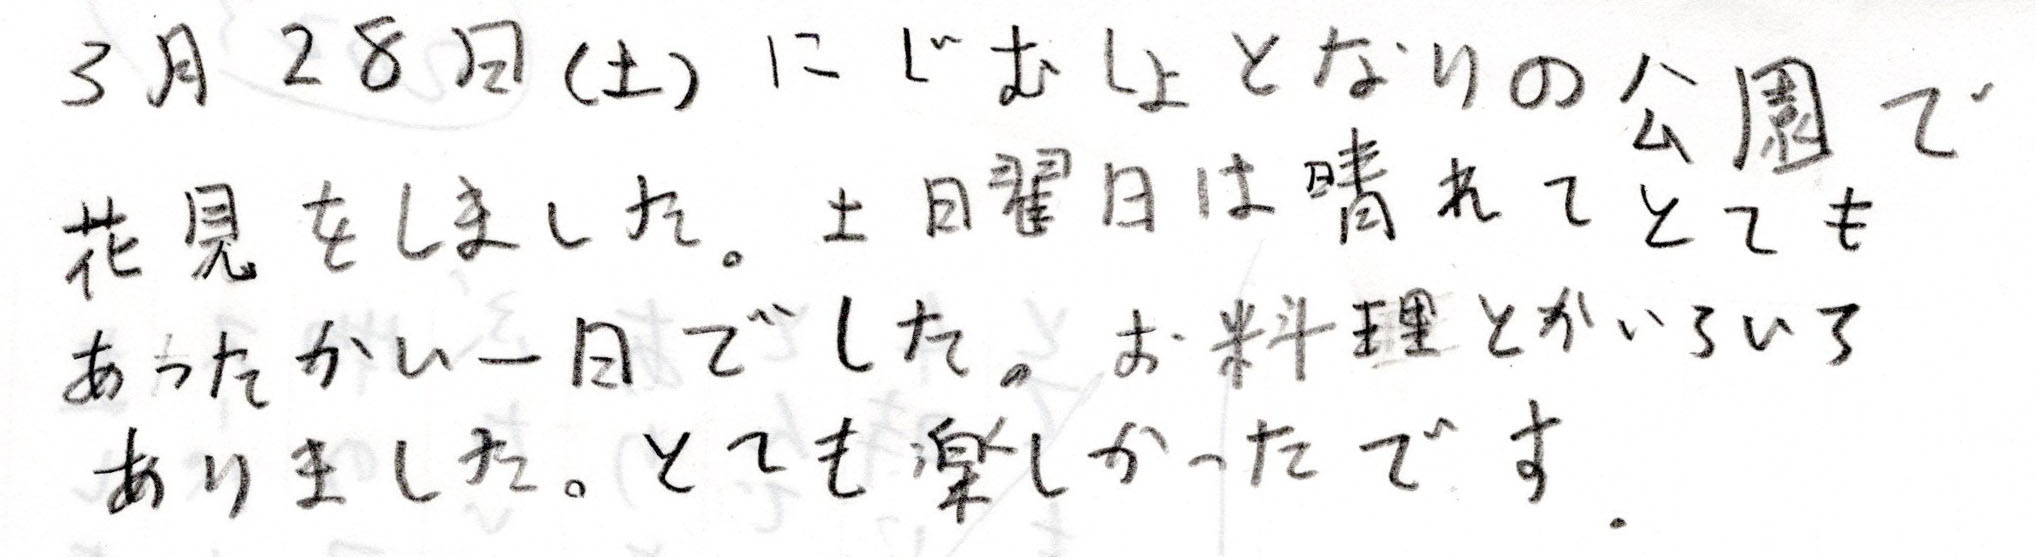 3月28日(土)にじむしょとなりの公園で
花見をしました。土日曜日は晴れてとても
あったかい一日でした。お料理とかいろいろ
ありました。とても楽しかったです.